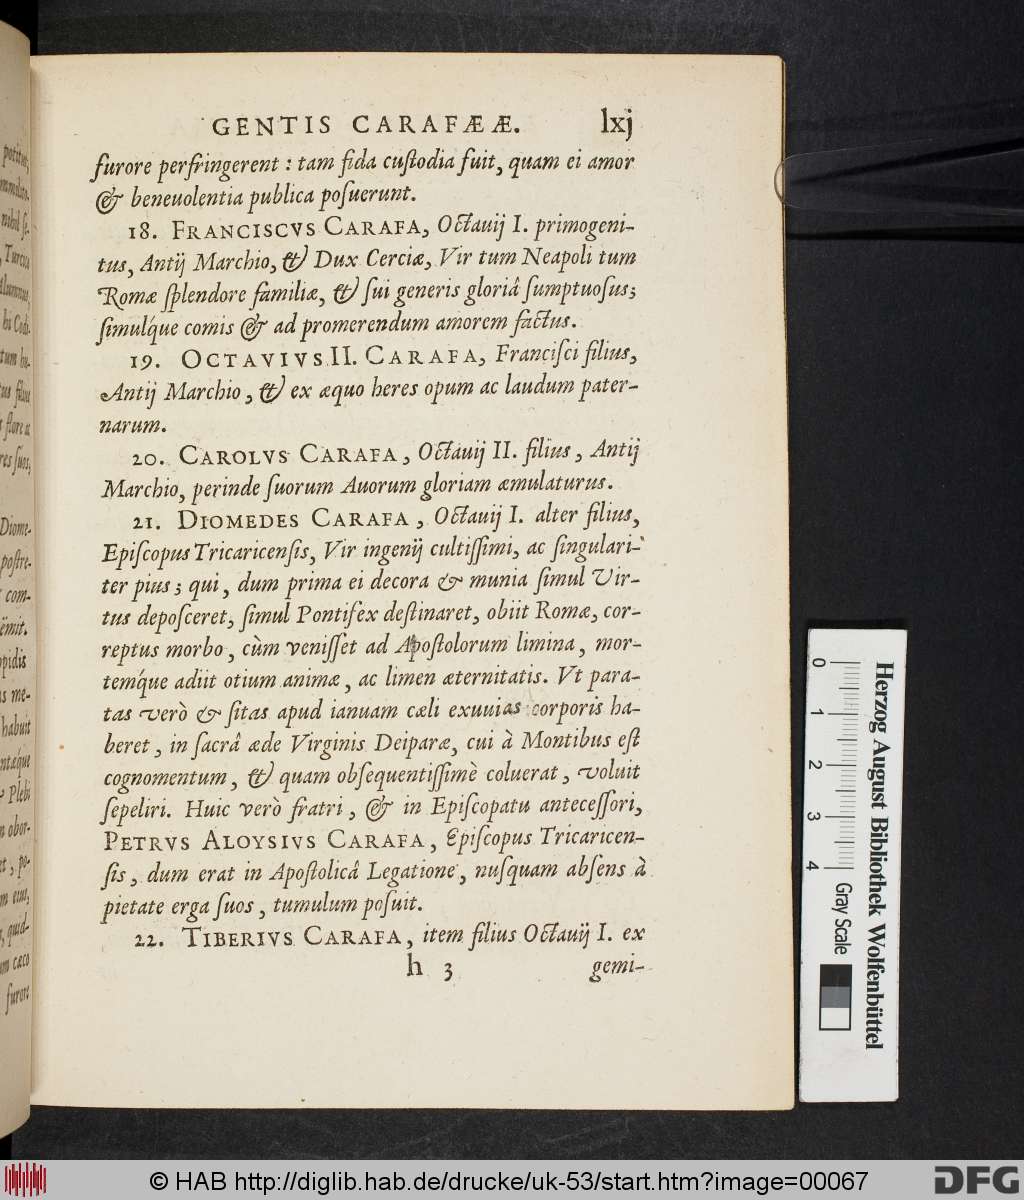 GENTIS CARAFÆÆ. lxj
furore perfringerent : tam fida custodia fuit, quam ei amor
& beneuolentia publica posuerunt.
18. FRANCISCVS CARAFA, Octauij I. primogeni-
tus, Antij Marchio, & Dux Cerciæ, Vir tum Neapoli tum
Romæ splendore familiæ, & sui generis gloriâ sumptuosus;
simulq́ue comis & ad promerendum amorem factus.
19. OCTAVIVS II. CARAFA, Francisci filius,
Antij Marchio, & ex æquo heres opum ac laudum pater-
narum.
20. CAROLVS CARAFA, Octauij II. filius, Antij
Marchio, perinde suorum Auorum gloriam æmulaturus.
21. DIOMEDES CARAFA, Octauij I. alter filius,
Episcopus Tricaricensis, Vir ingenij cultissimi, ac singulari-
ter pius; qui, dum prima ei decora & munia simul Vir-
tus deposceret, simul Pontifex destinaret, obiit Romæ, cor-
reptus morbo, cùm venisset ad Apostolorum limina, mor-
temq́ue adiit otium animæ, ac limen æternitatis. Vt para-
tas verò & sitas apud ianuam cæli exuuias corporis ha-
beret, in sacrâ æde Virginis Deiparæ, cui à Montibus est
cognomentum, & quam obsequentissimè coluerat, voluit
sepeliri. Huic verò fratri, & in Episcopatu antecessori,
PETRVS ALOYSIVS CARAFA, Episcopus Tricaricen-
sis, dum erat in Apostolicâ Legatione, nusquam absens à
pietate erga suos, tumulum posuit.
22. TIBERIVS CARAFA, item filius Octauij I. ex
h 3 gemi-
potitus,
nihil se-
Turcis
Alumnus,
hi Codi-
tum hu-
tus filius
flore ac
res suos,
Diome-
postre-
com-
ëmit.
me-
habuit
Plebi
obor-
et, po-
eius,
quid-
cæco
furore
0 1 2 3 4
Gray Scale
Herzog August Bibliothek Wolfenbüttel
© HAB http://diglib.hab.de/drucke/uk-53/start.htm?image=00067
DFG